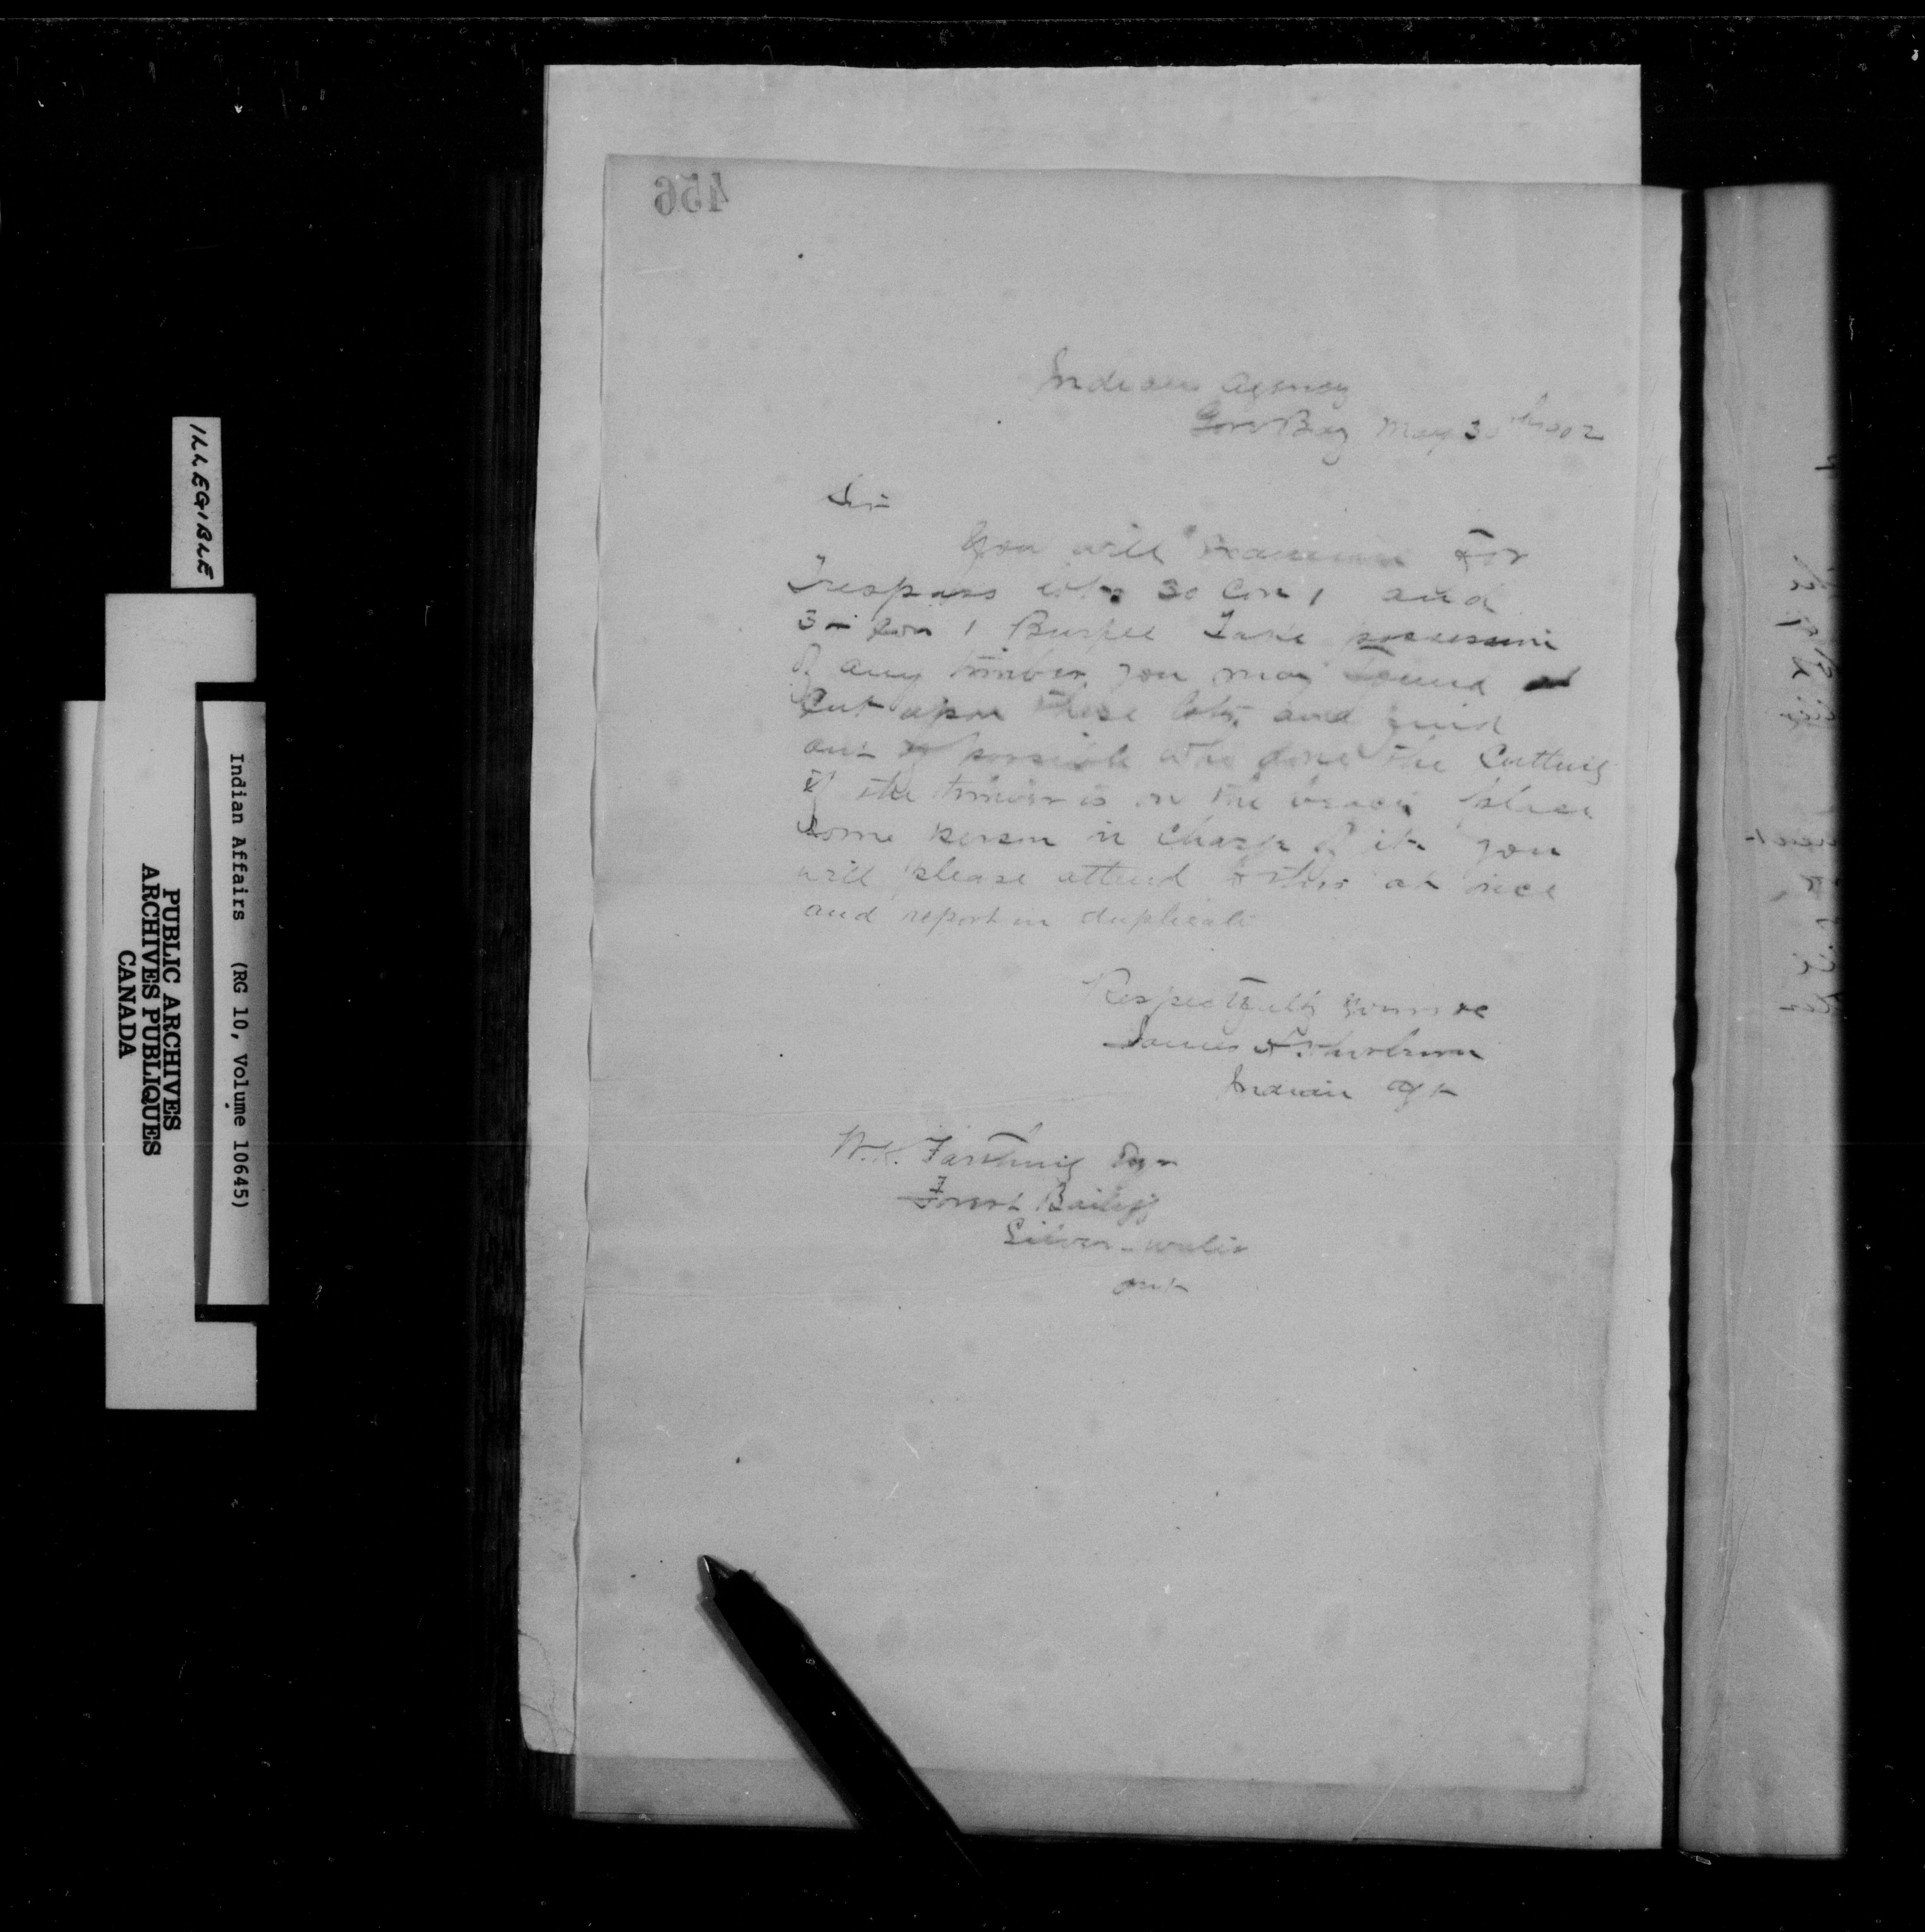 456
Indian Agency
Gore Bay May 30th 1902
Sir
You will examine for
Trespass lots 30 Con 1 and
3 Con 1 Burpee Take possession
of any timber you may found
Cut upon these lots and find
out if possible who done the Cutting
if the timber is on the beach place
some person in charge of it you
will please attend to this at once
and report in duplicate
Respectfully yours
James
Indian Agt
W.K. Farthing
Forest Bailiff
Silver water
Ont
ILLEGIBLE
Indian Affairs (RG 10, Volume 10645)
PUBLIC ARCHIVES
ARCHIVES PUBLIQUES
CANADA